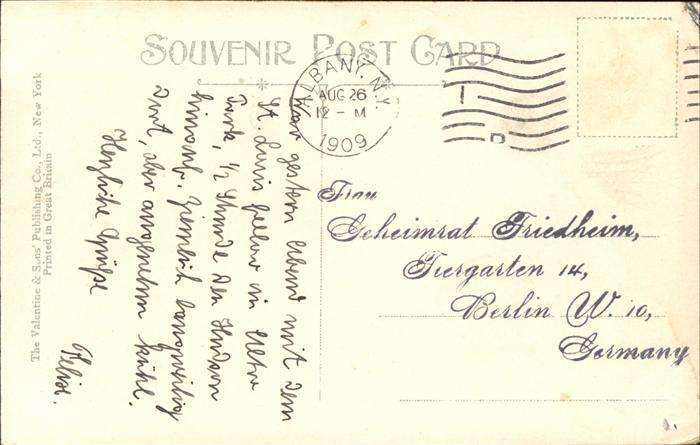 SOUVENIR POST CARD
ALBANY, N.Y.
AUG 26
12 - M
1909
The Valentine & Sons' Publishing Co., Ltd., New York
Printed in Great Britain
War gestern Abend mit dem
St. Louis in
Park, 1/2 Stunde den Hudson
hinauf. Ziemlich langweilig
dort, aber angenehm kühl.
Herzliche Grüße
Felix.
Frau
Geheimrat Friedheim,
Tiergarten 14,
Berlin W. 10,
Germany